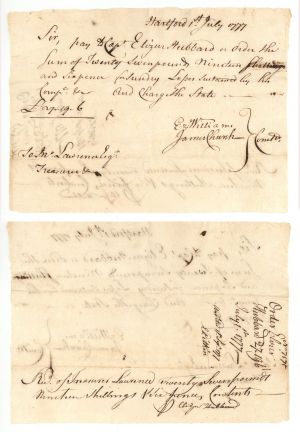 Hartford 1st July 1777
Sir,
pay to Capt Elizur Hubbard or Order the
Sum of Twenty Seven pounds Nineteen Shillings
and Sixpence for Sundry Losses Sustained by his
Compy &c And Charge the State
£27.19.6
Ez Williams
James Church
Comtee
To Jno Lawrence Esqr
Treasurer &c
Order Elizur
Hubbard £27.19.6
July 1st 1777
Recd of Treasurer Lawrence twenty Seven pounds
Nineteen Shillings & Six pence Contents
Elizur Hubbard